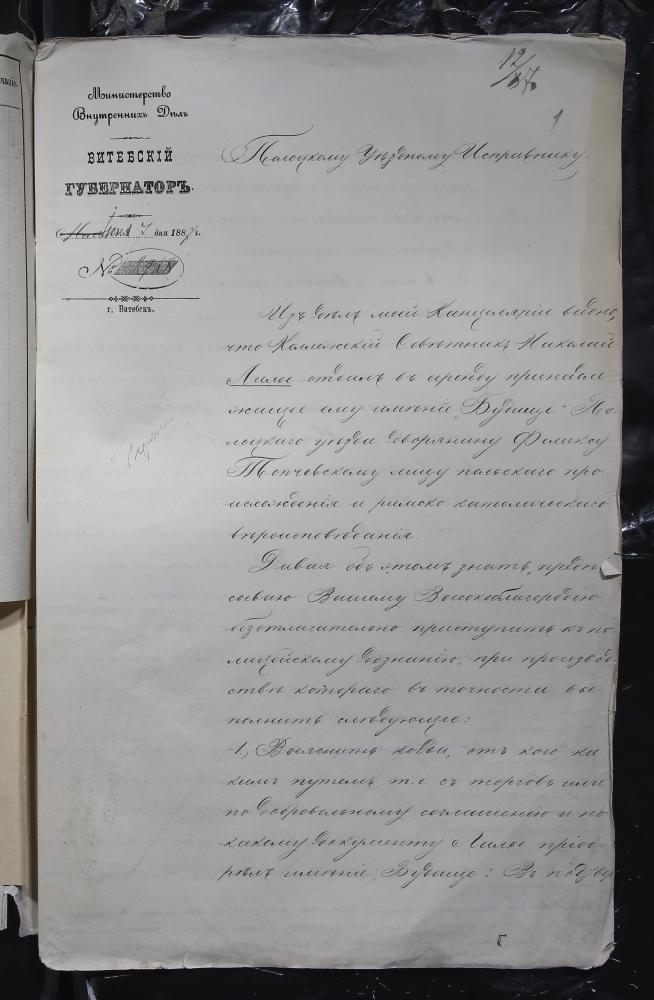 12/87
Министерство
Внутреннихъ Дѣлъ
ВИТЕБСКІЙ
ГУБЕРНАТОРЪ.
Іюня 7 дня 1887 г.
№
г. Витебскъ.
Полоцкому Уѣздному Исправнику.
Изъ дѣлъ моей Канцеляріи видно,
что Коллежскій Совѣтникъ Николай
Лилье отдалъ въ аренду принадле-
жащее ему имѣніе „Будище" По-
лоцкаго уѣзда дворянину Феликсу
Топчевскому лицу польскаго про
исхожденія и римско католическаго
вѣроисповѣданія.
Давая объ этомъ знать, предпи
сываю Вашему Высокоблагородію
безотлагательно приступить къ по
лицейскому дознанію, при производ
ствѣ котораго въ точности вы
полнить слѣдующее:
1., Выяснить когда, отъ кого ка
кимъ путемъ, т.е. съ торговъ или
по добровольному соглашенію и по
какому документу Лилье пріоб-
рѣлъ имѣніе Будище: Въ